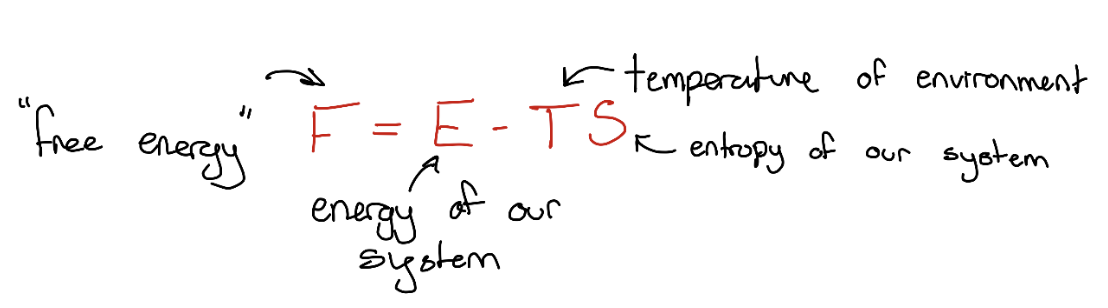 temperature of environment
"free energy" F = E - TS
entropy of our system
energy of our
system